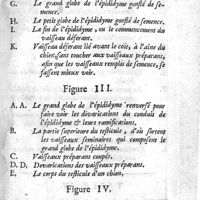 G. Le grand globe de l'épididyme gonflé de se-
mence.
H. Le petit globe de l'épididyme gonflé de semence.
I. La fin de l'épididyme, ou le commencement du
vaisseau déferant.
K. Vaisseau déferant lié avant le coït, à l'aîne du
chien, sans toucher aux vaisseaux préparans,
afin que les vaisseaux remplis de semence, se
fassent mieux voir.
Figure III.
A. A. Le grand globe de l'épididyme renversé pour
faire voir les divarications du conduit de
l'épididyme & leurs ramifications.
B. La partie superieure du testicule, d'où sortent
les vaisseaux seminaires qui composent le
grand globe de l'épididyme.
C. Vaisseaux préparans coupés.
D. D. Devarications des vaisseaux préparans.
E. Le corps du testicule d'un chien.
Figure IV.